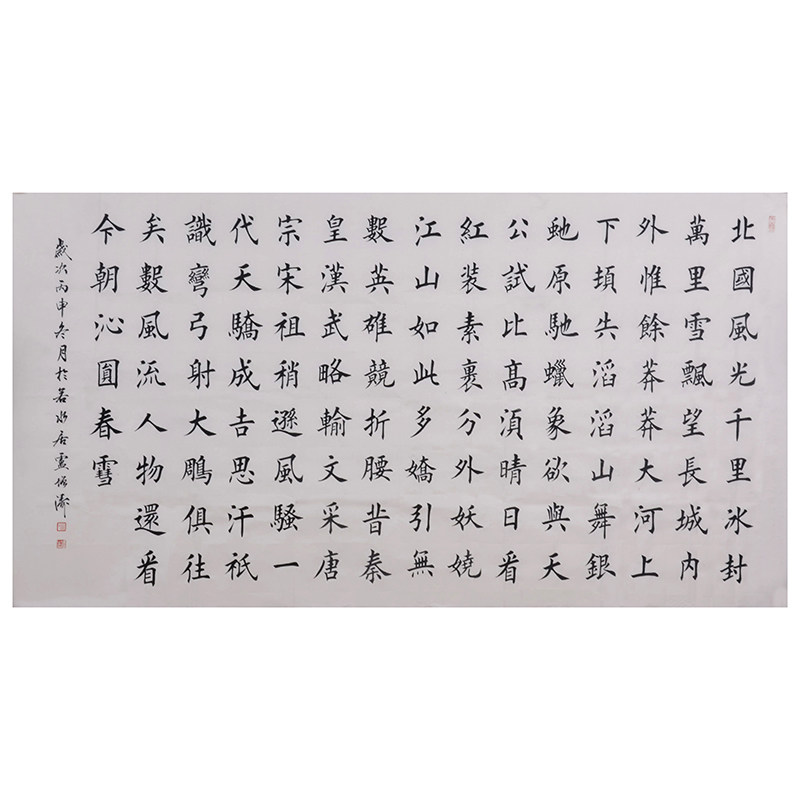 北國風光千里冰封
萬里雪飄望長城內
外惟餘莽莽大河上
下頓失滔滔山舞銀
虵原馳蠟象欲與天
公試比髙須晴日看
紅裝素裹分外妖嬈
江山如此多嬌引無
數英雄競折腰昔秦
皇漢武略輸文采唐
宗宋祖稍遜風騷一
代天驕成吉思汗祇
識彎弓射大鵰俱往
矣數風流人物還看
今朝沁園春雪
歲次丙申冬月於若水居